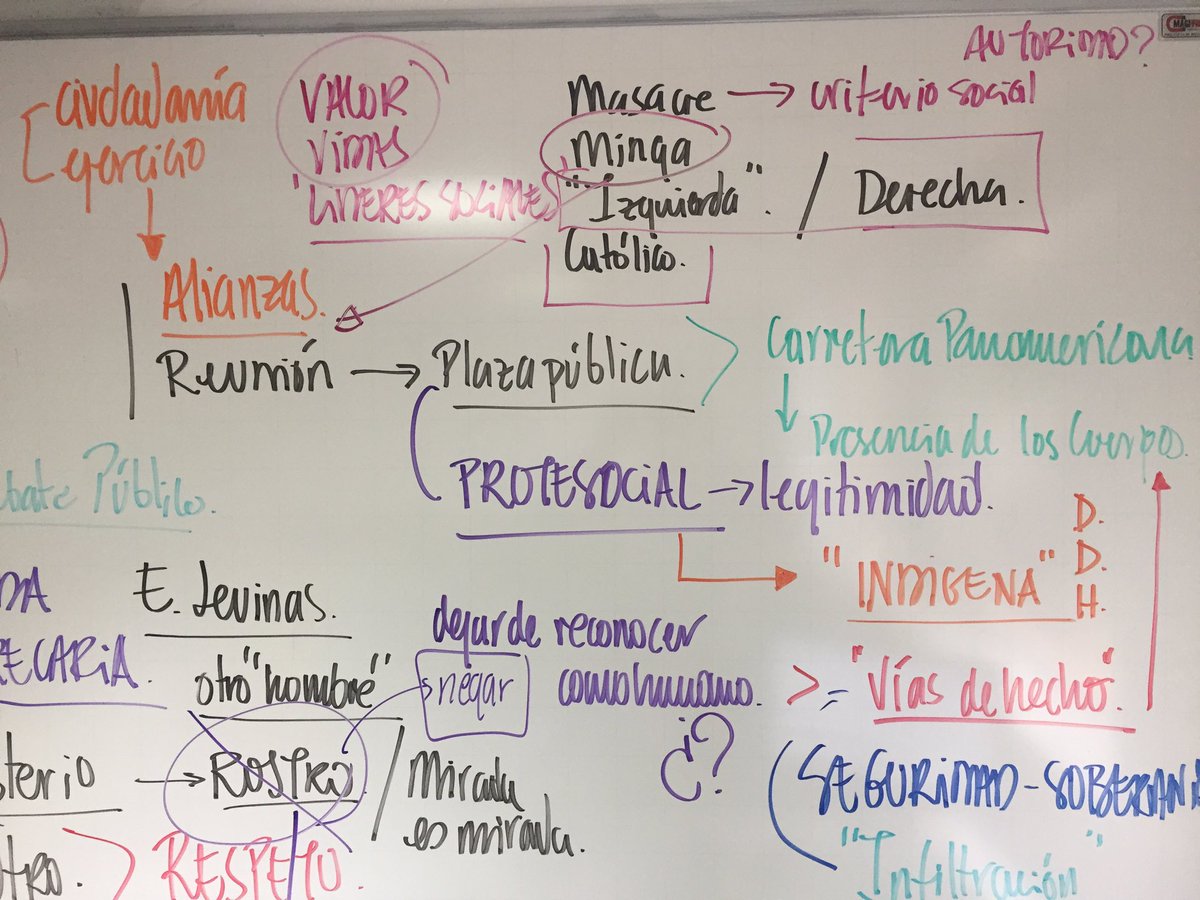 AUTORIDAD?
ciudadanía
ejercicio
VALOR
VIDAS
"LIDERES SOCIALES"
Masacre → criterio social
Minga
"Izquierda". / Derecha.
Católico.
Alianzas.
Reunión → Plaza pública.
Carretera Panamericana
Presencia de los Cuerpos
bate Público.
PROTESOCIAL → legitimidad.
"INDÍGENA"
D.
D.
H.
DA
ECARIA.
E. Levinas.
otro "hombre"
dejar de reconocer
negar como humano.
¿?
> = "Vías de hecho"
sterio → ROSTRO / Mirada
es mirada.
tro. > RESPETO.
SEGURIDAD - SOBERANA
"Infiltración"